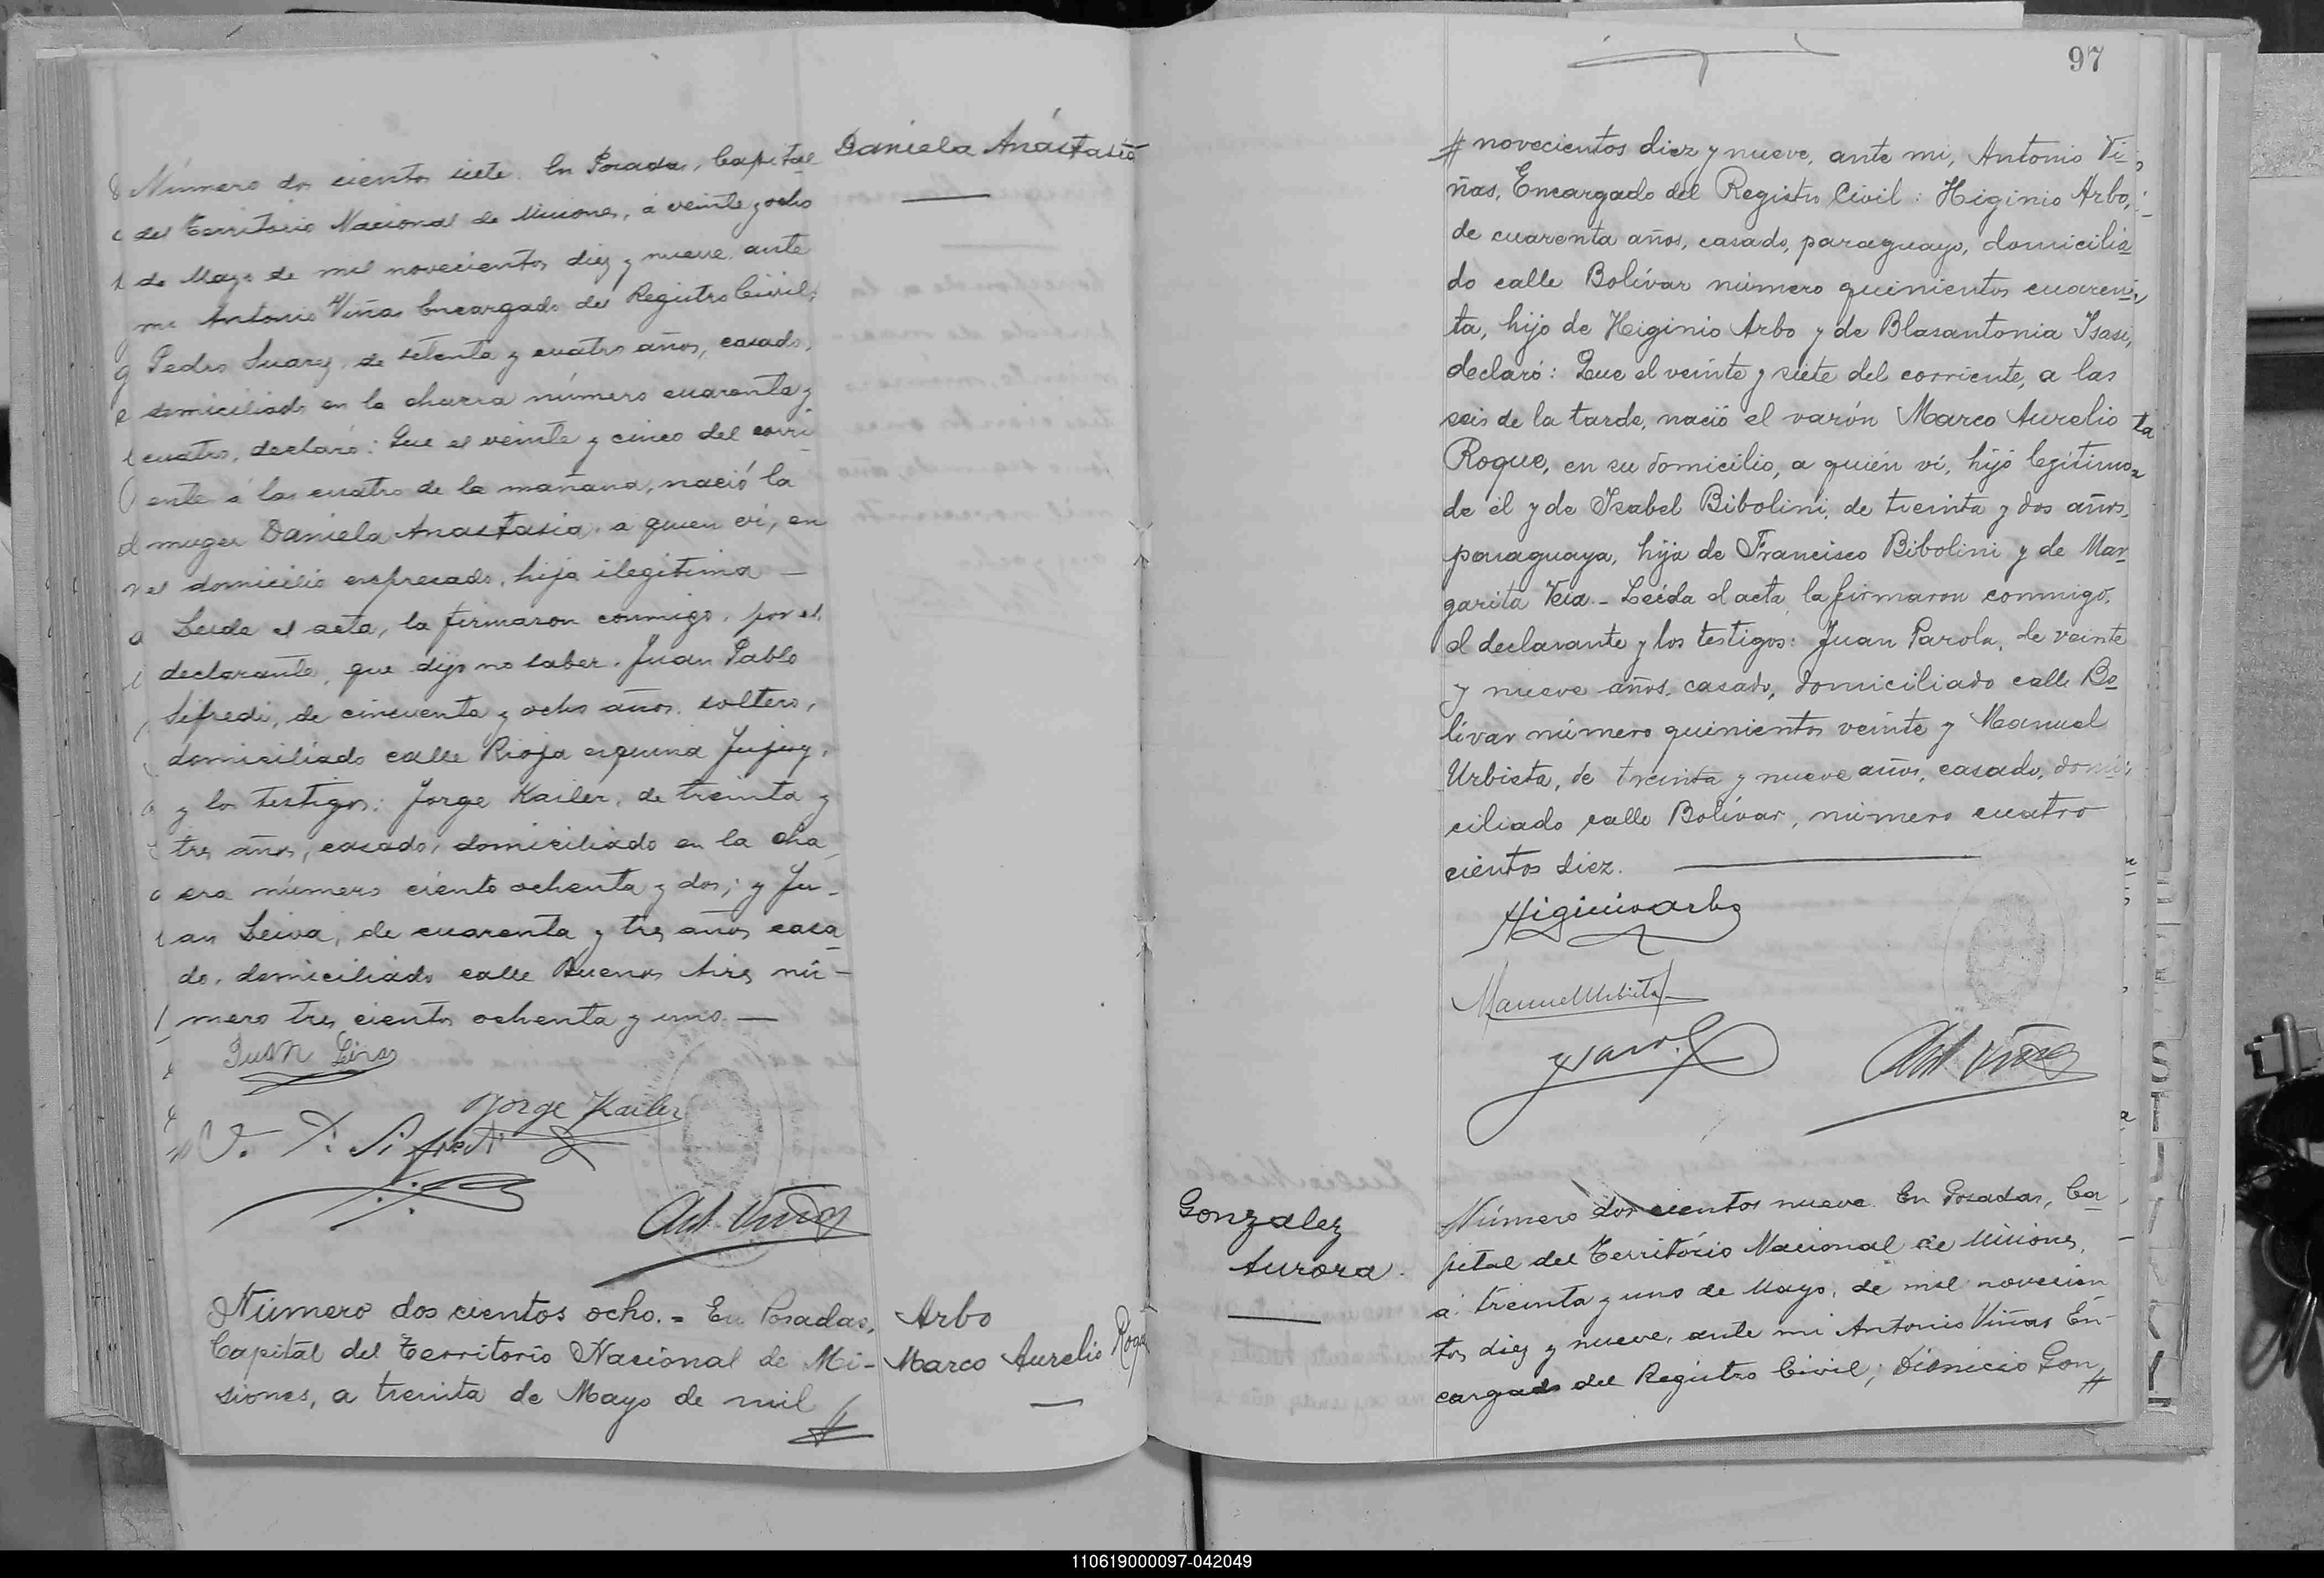 Daniela Anastasia
Número dos cientos siete. En Posadas, Capital
del Territorio Nacional de Misiones, á veinte y ocho
de Mayo de mil novecientos diez y nueve, ante
mi Antonio Viñas Encargado del Registro Civil,
Pedro Suarez, de setenta y cuatro años, casado,
domiciliado en la chacra número cuarenta y
cuatro, declaró: Que el veinte y cinco del corri
ente á las cuatro de la mañana, nació la
muger Daniela Anastasia, a quien ví, en
el domicilio expresado, hija ilegitima —
Leida el acta, la firmaron conmigo, por el
declarante, que dijo no saber, Juan Pablo
Sifredi, de cincuenta y ocho años, soltero,
domiciliado calle Rioja esquina Jujuy,
y los testigos: Jorge Kailer, de treinta y
tres años, casado, domiciliado en la cha
cra número ciento ochenta y dos; y Ju-
an Leiva, de cuarenta y tres años, casa
do, domiciliado calle Buenos Aires nú-
mero tres cientos ochenta y uno. —
Juan
Jorge Kailer
J. P. Sifredi
Ant Viñas
Arbo
Marco Aurelio Roque
Número dos cientos ocho. = En Posadas,
Capital del Territorio Nacional de Mi-
siones, a treinta de Mayo de mil #
97
# novecientos diez y nueve, ante mi, Antonio Vi
ñas, Encargado del Registro Civil: Higinio Arbo,
de cuarenta años, casado, paraguayo, domicilia
do calle Bolívar número quinientos cuaren
ta, hijo de Higinio Arbo y de Blasantonia Isasi,
declaró: Que el veinte y siete del corriente, a las
seis de la tarde, nació el varón Marco Aurelio
Roque, en su domicilio, a quién ví, hijo legítimo
de él y de Isabel Bibolini, de treinta y dos años,
paraguaya, hija de Francisco Bibolini y de Mar
garita Veia. - Leída el acta, la firmaron conmigo,
el declarante y los testigos: Juan Parola, de veinte
y nueve años, casado, domiciliado calle Bo
lívar número quinientos veinte y Manuel
Urbieta, de treinta y nueve años, casado, domi
ciliado calle Bolívar, número cuatro
cientos diez.
Higinio Arbo
Manuel Urbieta
Ant Viñas
Gonzalez
Aurora.
Número dos cientos nueve. En Posadas, Ca
pital del Territorio Nacional de Misiones,
á treinta y uno de Mayo, de mil novecien
tos diez y nueve, ante mi Antonio Viñas En-
cargado del Registro Civil; Dionicio Gon
#
110619000097-042049